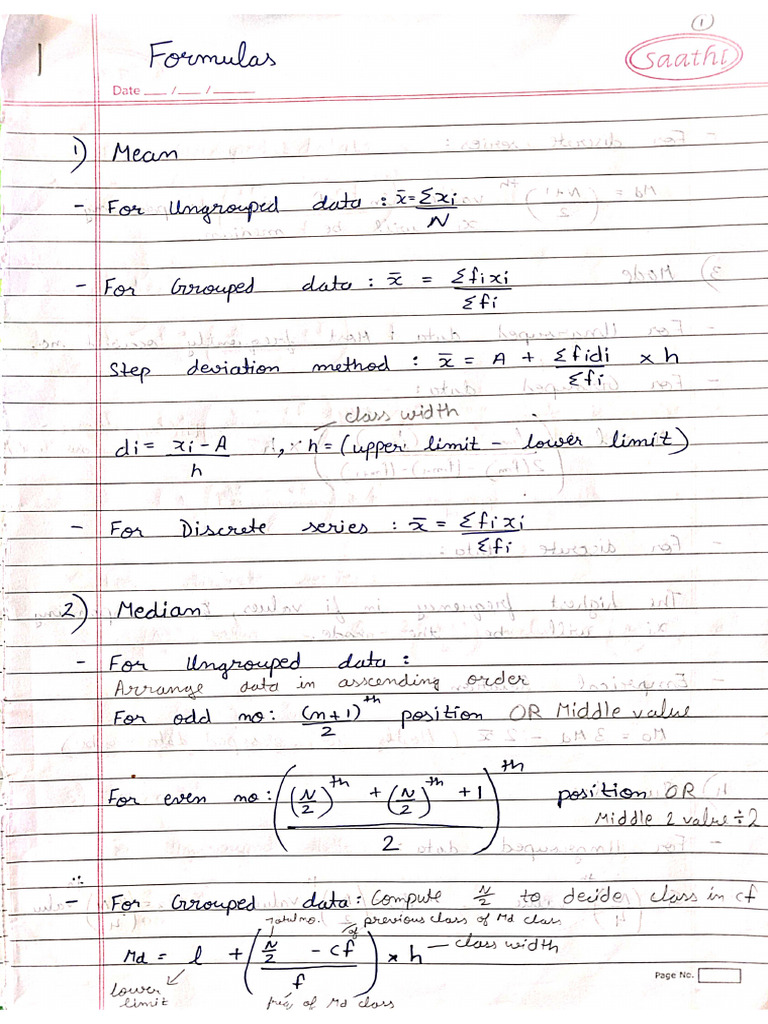 1
Formulas
saathi
Date ___ /___ /______
1) Mean
- For Ungrouped data : x̄ = Σxi / N
- For Grouped data : x̄ = Σfixi / Σfi
Step deviation method : x̄ = A + Σfidi / Σfi × h
class width
di = xi - A / h , h = (upper limit - lower limit)
- For Discrete series : x̄ = Σfixi / Σfi
2) Median
- For Ungrouped data :
Arrange data in asscending order
For odd no: (n+1)/2 th position OR Middle value
For even no: ((N/2)th + (N/2)th + 1 / 2)th position OR
Middle 2 value ÷ 2
∴
- For Grouped data: Compute N/2 to decide class in cf
Total no. cf of previous class of Md class
Md = l + (N/2 - cf / f) × h — class width
lower limit
freq. of Md class
Page No.